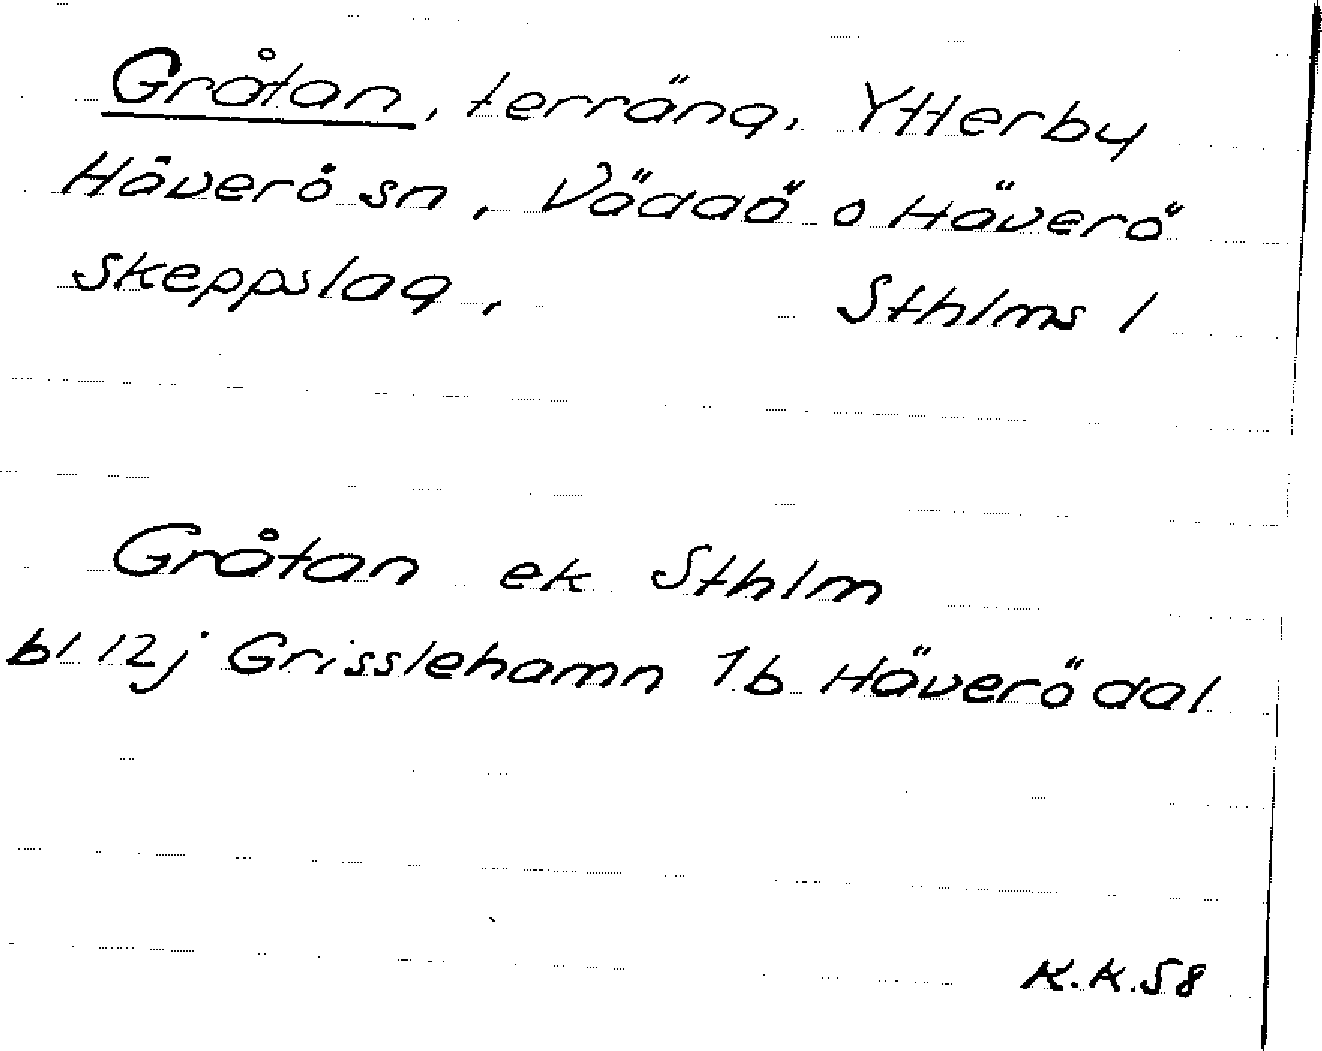 Gråtan, terräng, Ytterby
Häverö sn, Väddö o Häverö
Skeppslag, Sthlms l
Gråtan ek Sthlm
bl 12j Grisslehamn 1b Häverödal
K.K.58